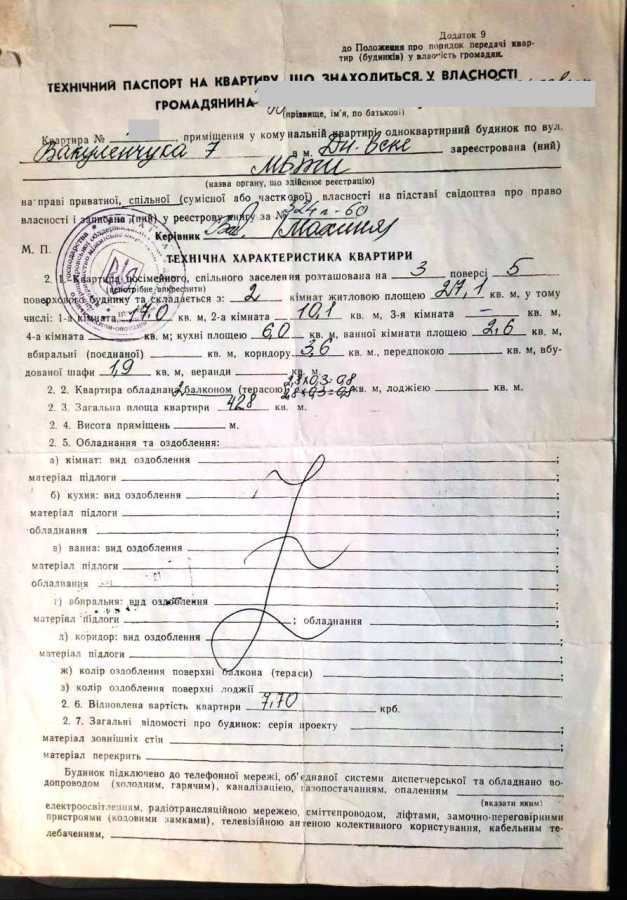 Додаток 9
до Положення про порядок передачі квар-
тир (будинків) у власність громадян.
ТЕХНІЧНИЙ ПАСПОРТ НА КВАРТИРУ, ЩО ЗНАХОДИТЬСЯ У ВЛАСНОСТІ
ГРОМАДЯНИНА
(прізвище, ім'я, по батькові)
Квартира № приміщення у комунальній квартирі, одноквартирний будинок по вул.
Вакуленчука 7 в м. Дн-вске зареєстрована (ний)
МБТИ
(назва органу, що здійснює реєстрацію)
на праві приватної, спільної (сумісної або часткової) власності на підставі свідоцтва про право
власності і записана (ний) у реєстрову книгу за № 324п-60
Керівник
М. П.
ТЕХНІЧНА ХАРАКТЕРИСТИКА КВАРТИРИ
2. 1. Квартира посімейного, спільного заселення розташована на 3 поверсі 5
(непотрібне викреслити)
поверхового будинку та складається з: 2 кімнат житловою площею 27,1 кв. м, у тому
числі: 1-а кімната 17.0 кв. м, 2-а кімната 10,1 кв. м, 3-я кімната – кв. м,
4-а кімната кв. м; кухні площею 6,0 кв. м, ванної кімнати площею 2,6 кв. м,
вбиральні (поєднаної) кв. м, коридору 3,6 кв. м., передпокою кв. м, вбу-
дованої шафи 1,9 кв. м, веранди кв. м.
2. 2. Квартира обладнана 2 балконом (терасою) 2,8х0,3=0,8 кв. м, лоджією кв. м.
2,8х0,3=0,8
2. 3. Загальна площа квартири 42,8 кв. м.
2. 4. Висота приміщень м.
2. 5. Обладнання та оздоблення:
а) кімнат: вид оздоблення ;
матеріал підлоги ;
б) кухня: вид оздоблення ;
матеріал підлоги ;
обладнання ;
в) ванна: вид оздоблення ;
матеріал підлоги ;
обладнання ;
г) вбиральня: вид оздоблення ;
матеріал підлоги ; обладнання ;
д) коридор: вид оздоблення ;
матеріал підлоги ;
ж) колір оздоблення поверхні балкона (тераси) ;
з) колір оздоблення поверхні лоджії
2. 6. Відновлена вартість квартири 7,70 крб.
2. 7. Загальні відомості про будинок: серія проекту ;
матеріал зовнішніх стін ;
матеріал перекрить
Будинок підключено до телефонної мережі, об'єднаної системи диспетчерської та обладнано во-
допроводом (холодним, гарячим), каналізацією, газопостачанням, опаленням
(вказати яким)
електроосвітленням, радіотрансляційною мережею, сміттєпроводом, ліфтами, замочно-переговірними
пристроями (кодовими замками), телевізійною антеною колективного користування, кабельним те-
лебаченням,